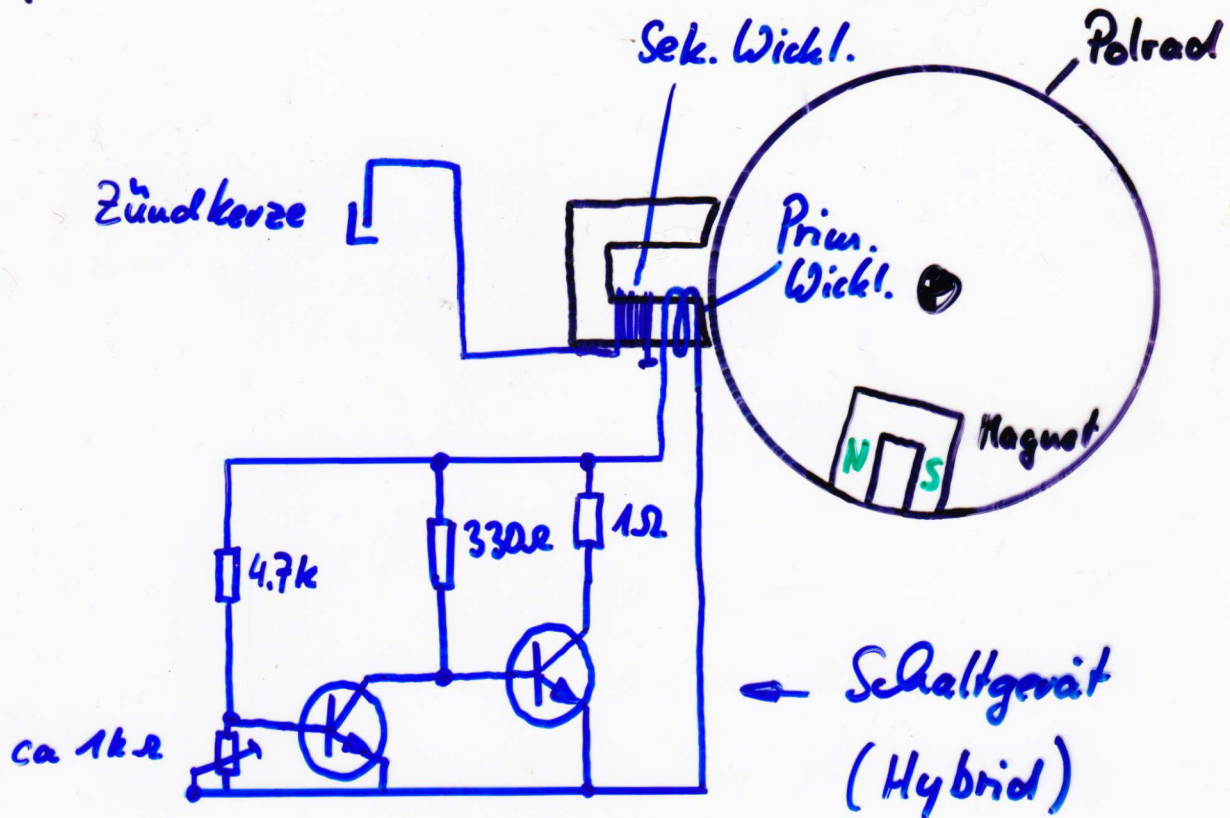 Sek. Wickl.
Polrad
Zündkerze
Prim.
Wickl.
Magnet
N
S
330Ω
1Ω
4.7k
ca 1kΩ
Schaltgerät
(Hybrid)